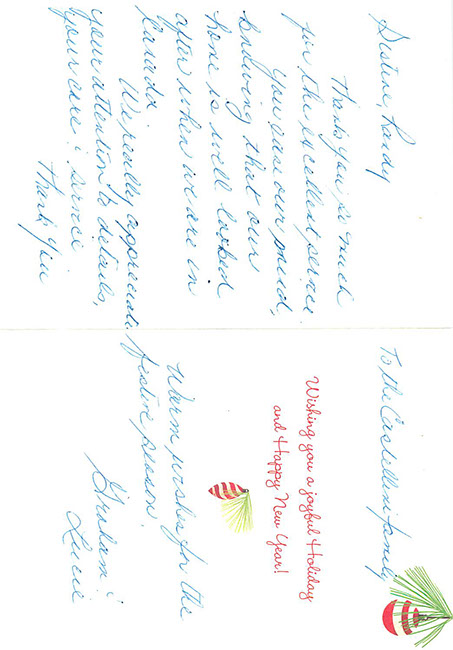 Justine, Randy
Thank you so much
for the excellent service.
You ease our mind,
knowing that our
home is well looked
after when we are in
Canada.
We really appreciate
your attention to details,
your care & service
Thank You
To the Castellini family
Wishing you a joyful Holiday
and Happy New Year!
Warm wishes for the
festive season.
Graham &
Lucie